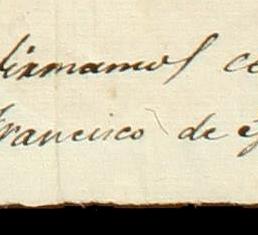 firmamos co
Francisco de